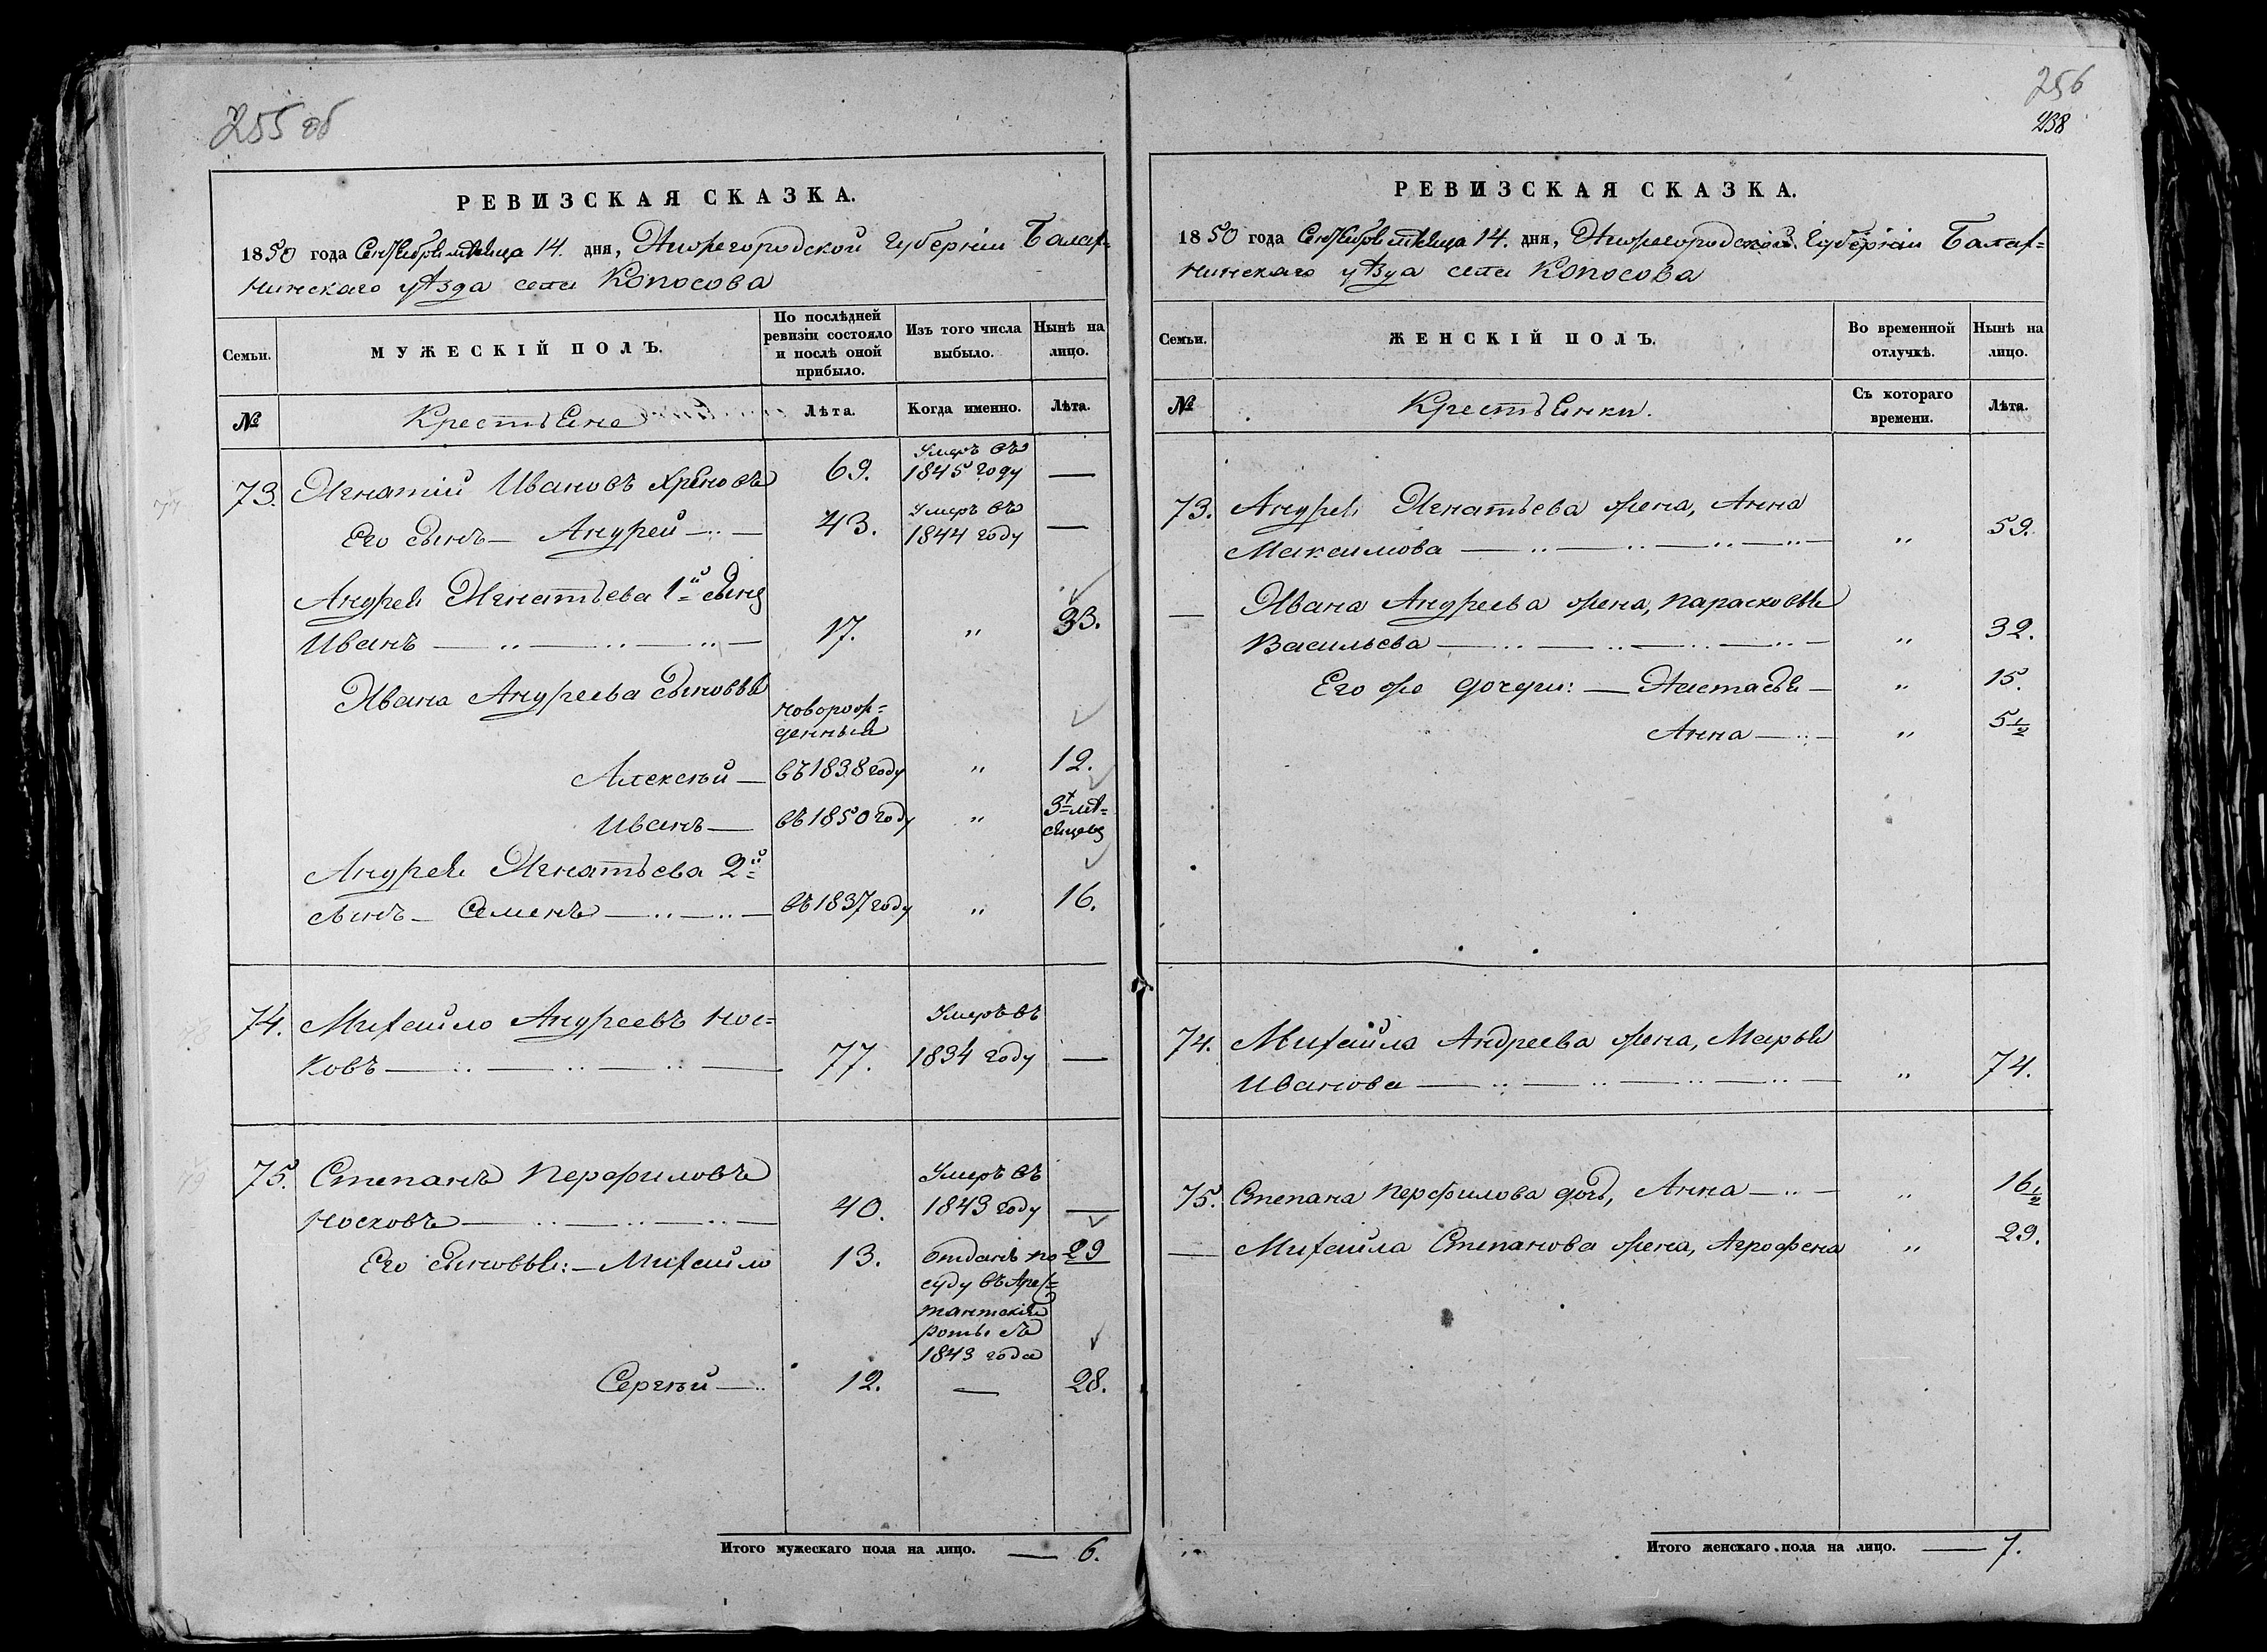 255 об
РЕВИЗСКАЯ СКАЗКА.
1850 года Сентября месяца 14. дня, Нижегородской Губернiи Балах-
нинскаго уѣзда села Копосова
Семьи.
МУЖЕСКІЙ ПОЛЪ.
По послѣдней ревизіи состояло и послѣ оной прибыло.
Изъ того числа выбыло.
Нынѣ на лицо.
№
Крестьяне
Лѣта.
Когда именно.
Лѣта.
73. Игнатiй Ивановъ Хреновъ 69. Умеръ въ 1845 году —
Его сынъ — Андрей 43. Умеръ въ 1844 году —
Андрея Игнатьева 1й сынъ
Иванъ 17. „ 33.
Ивана Андреева сыновья
новорож-
денный
Алексѣй — въ 1838 году „ 12.
Иванъ — въ 1850 году „ 3х мѣ-
сяцевъ
Андрея Игнатьева 2й
сынъ — Семенъ въ 1837 году „ 16.
74. Михайло Андреевъ Нос-
ковъ 77. Умеръ въ 1834 году —
75. Степанъ Перфиловъ
Носковъ 40. Умеръ въ 1843 году —
Его сыновья: — Михайло 13. отданъ по 29
суду въ Арес-
тантскiя
роты съ
1843 года
Сергѣй 12. — 28.
Итого мужескаго пола на лицо. — 6.
256
238
РЕВИЗСКАЯ СКАЗКА.
1850 года Сентября месяца 14. дня, Нижегородской Губернiи Балах-
нинскаго уѣзда села Копосова
Семьи.
ЖЕНСКІЙ ПОЛЪ.
Во временной отлучкѣ.
Нынѣ на лицо.
№
Крестьянки.
Съ котораго времени.
Лѣта.
73. Андрея Игнатьева жена, Анна
Максимова „ 59.
— Ивана Андреева жена, Парасковья
Васильева „ 32.
Его же дочери: — Настасья „ 15.
Анна „ 5½
74. Михайла Андреева жена, Марья
Иванова „ 74.
75. Степана Перфилова дочь, Анна „ 16½
— Михайла Степанова жена, Агрофена „ 29.
Итого женскаго пола на лицо. — 7.